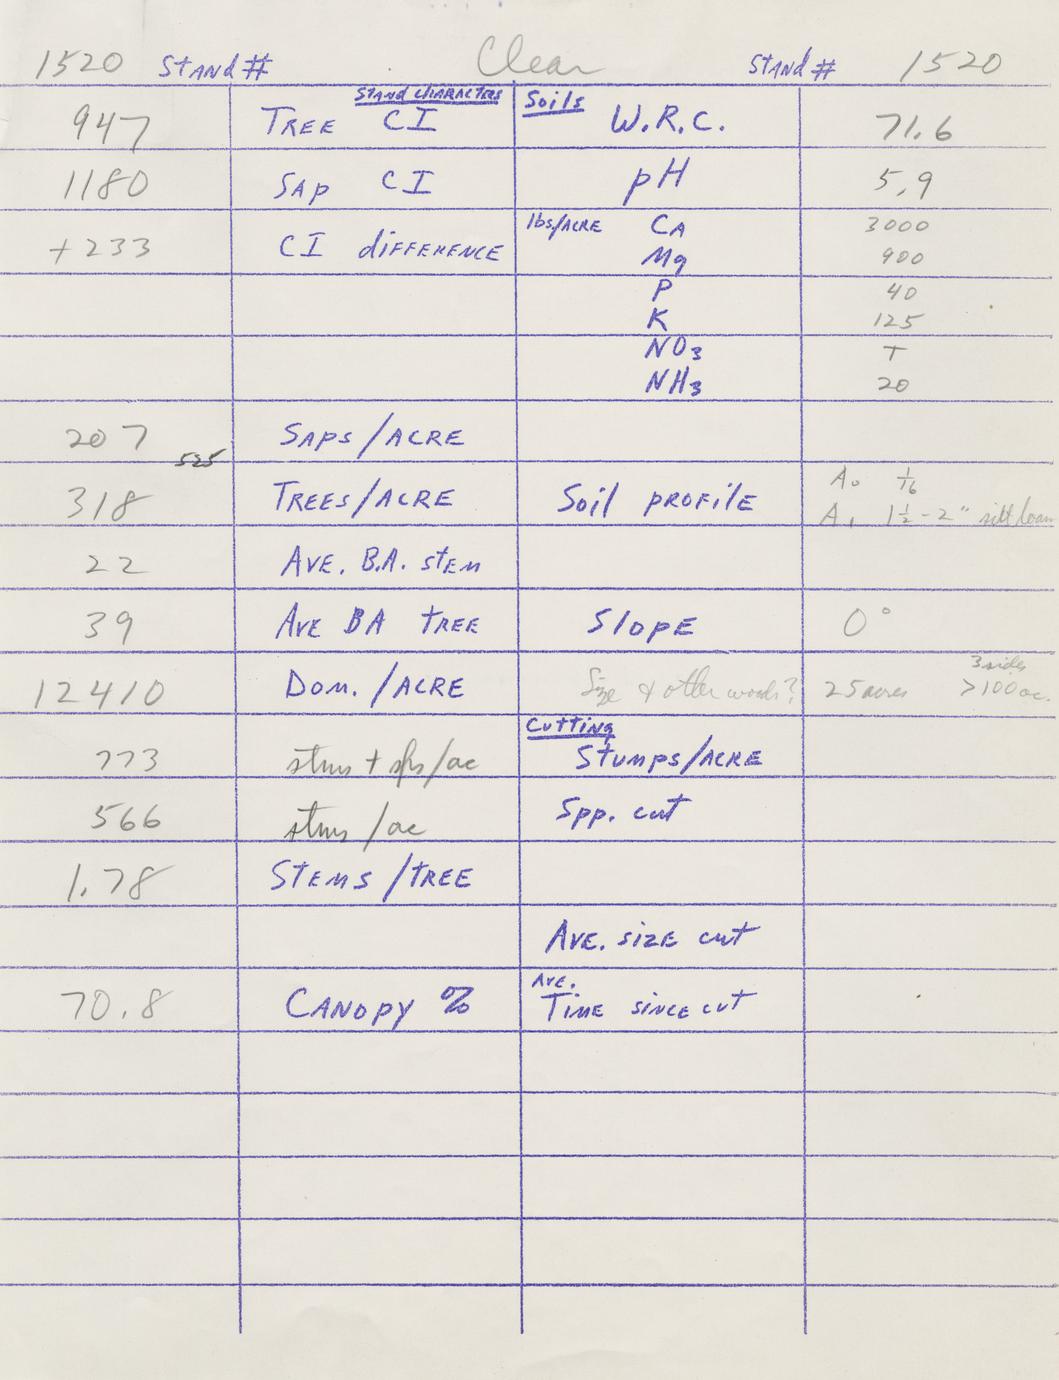 1520 Stand # Clear Stand # 1520
Stand Characters Soils
947 Tree CI W.R.C. 71.6
1180 Sap CI pH 5.9
+233 CI difference lbs/Acre Ca 3000
Mg 900
P 40
K 125
NO3 T
NH3 20
207 Saps/Acre
525
318 Trees/Acre Soil profile A0 1/16
A1 1 1/2 - 2" silt loam
22 Ave. B.A. stem
39 Ave BA tree Slope 0°
12410 Dom./Acre Size & other woods? 25 acres 3 sides >100 ac.
Cutting
773 stms + sps/ac Stumps/Acre
566 stms/ac Spp. cut
1.78 Stems/tree
Ave. size cut
70.8 Canopy % Ave. Time since cut